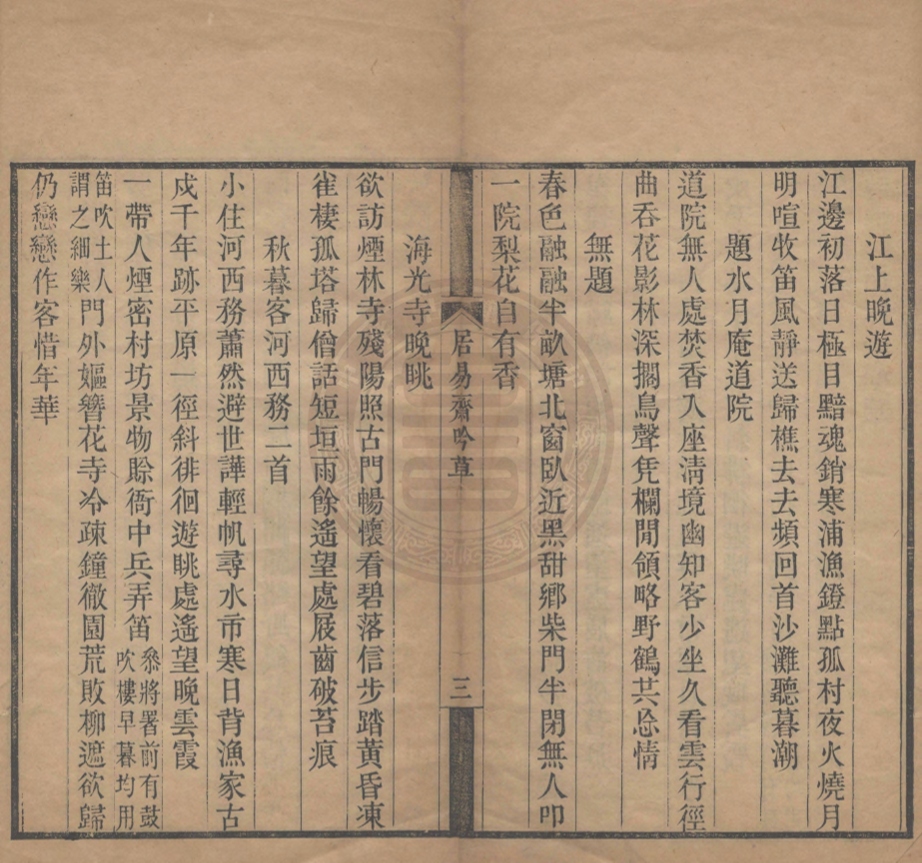 江上晚遊
江邊初落日極目黯魂銷寒浦漁鐙點孤村夜火燒月
明喧收笛風靜送歸樵去去頻回首沙灘聽暮潮
題水月庵道院
道院無人處焚香入座淸境幽知客少坐久看雲行徑
曲吞花影林深擱鳥聲凭欄閒領略野鶴共忘情
無題
春色融融半畝塘北窗臥近黑甜鄉柴門半閉無人叩
一院梨花自有香
居易齋吟草
三
海光寺晚眺
欲訪煙林寺殘陽照古門暢懷看碧落信步踏黃昏凍
雀棲孤塔歸僧話短垣雨餘遙望處屐齒破苔痕
秋暮客河西務二首
小住河西務蕭然避世譁輕帆尋水市寒日背漁家古
戍千年跡平原一徑斜徘徊遊眺處遙望晚雲霞
一帶人煙密村坊景物賒衙中兵弄笛叅將署前有鼓吹樓早暮均用
笛吹土人謂之細樂門外嫗簪花寺冷疎鐘徹園荒敗柳遮欲歸
仍戀戀作客惜年華